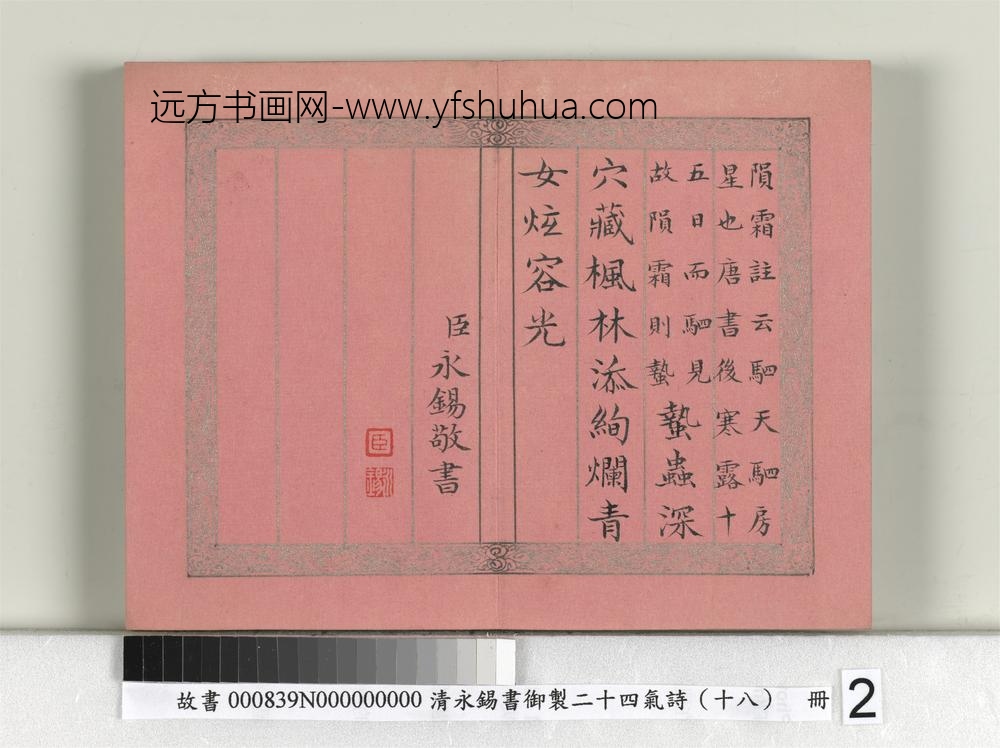 远方书画网-www.yfshuhua.com
隕霜註云駟天駟房
星也唐書後寒露十
五日而駟見
故隕霜則蟄
蟄蟲深
穴藏楓林添絢爛青
女炫容光
臣永錫敬書
臣
故書 000839N000000000 清永錫書御製二十四氣詩（十八） 冊 2